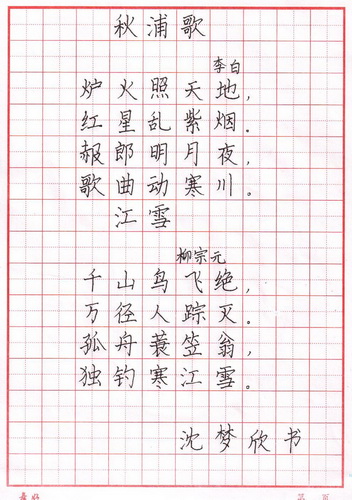 秋浦歌
李白
炉火照天地,
红星乱紫烟。
赧郎明月夜,
歌曲动寒川。
江雪
柳宗元
千山鸟飞绝,
万径人踪灭。
孤舟蓑笠翁,
独钓寒江雪。
沈梦欣书